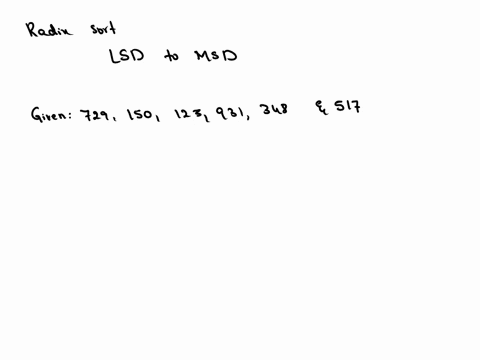 Radix sort
LSD to MSD
Given: 729, 150, 123, 931, 348 & 517